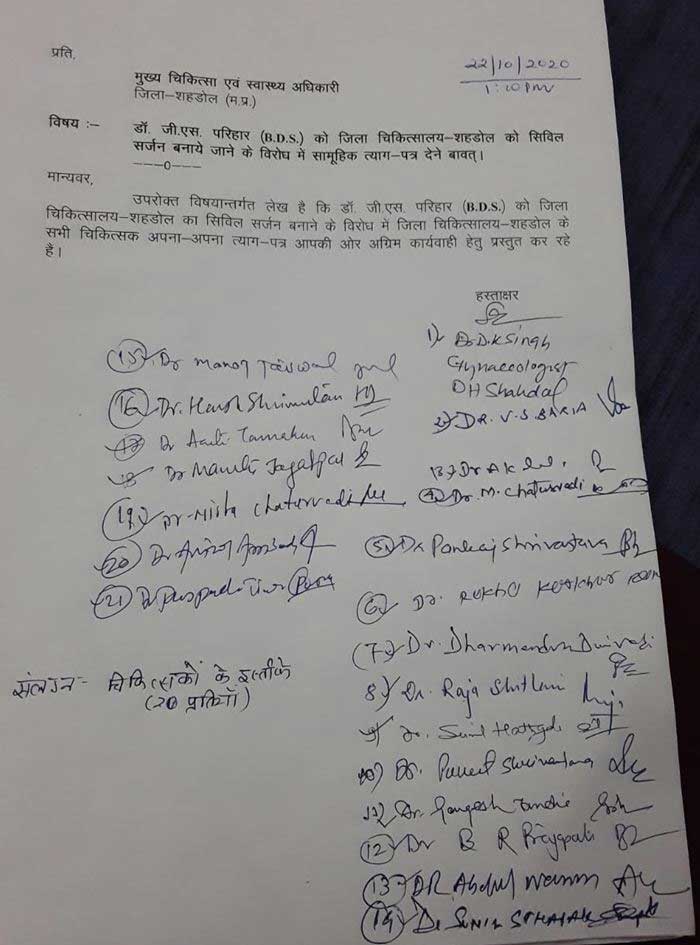 प्रति,
22/10/2020
मुख्य चिकित्सा एवं स्वास्थ्य अधिकारी
1:20 PM
जिला–शहडोल (म.प्र.)
विषय :– डॉ. जी.एस. परिहार (B.D.S.) को जिला चिकित्सालय–शहडोल को सिविल
सर्जन बनाये जाने के विरोध में सामूहिक त्याग–पत्र देने बावत्।
–––0–––
मान्यवर,
उपरोक्त विषयान्तर्गत लेख है कि डॉ. जी.एस. परिहार (B.D.S.) को जिला
चिकित्सालय–शहडोल का सिविल सर्जन बनाने के विरोध में जिला चिकित्सालय–शहडोल के
सभी चिकित्सक अपना–अपना त्याग–पत्र आपकी ओर अग्रिम कार्यवाही हेतु प्रस्तुत कर रहे
हैं।
हस्ताक्षर
1) Dr. D.K Singh
Gynaecologist
DH Shahdol
2) DR. V.S. BARIA
3) Dr A K
4) Dr. M. Chaturvedi
5) Dr Pankaj Shrivastava
6) Dr.
7) Dr. Dharmendra Dwivedi
8) Dr. Raja
9) Dr. Sunil
10) Dr. Puneet Shrivastava
11) Dr. Gangesh
12) Dr B R Prajapati
13) DR Abdul
14) Dr SUNIL
15) Dr Manoj Jaiswal
16) Dr. Harsh
17) Dr Aarti Tamrakar
18) Dr
19) Dr Nisha Chaturvedi
20) Dr
21) Dr
संलग्न – चिकित्सकों के इस्तीफे
(20 प्रतियाँ)